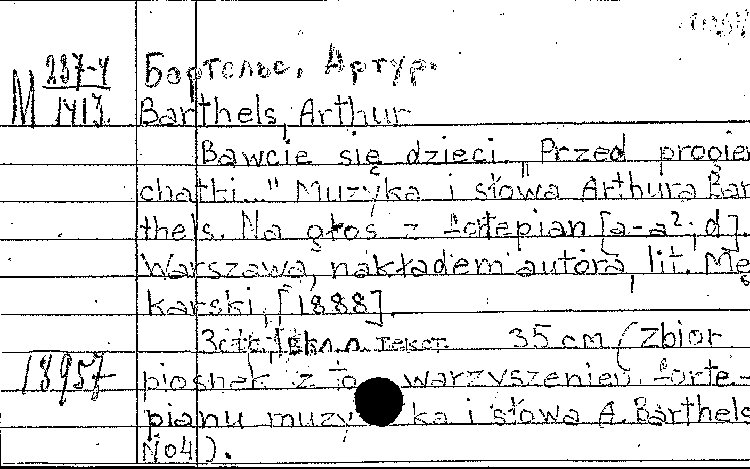 М 237-4/1413.
Бартельс, Артур.
Barthels, Arthur
Bawcie się dzieci. „Przed progiem
chatki..." Muzyka i słowa Arthura Bar
thels. Na głos z fortepian [a-a²; d].
Warszawa, nakładem autora, lit. Mę
karski, [1888].
3 стр. [Вкл. л. текст 35 cm (Zbior
18957
piosnek z to warzyszeniem forte-
pianu muzy ka i słowa A. Barthels
No 4).